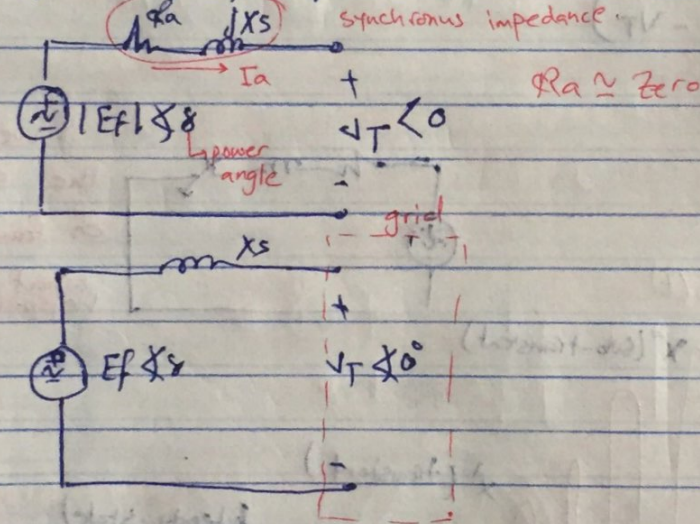 Ra jXs synchronus impedance.
Ia
Ra ≃ Zero
+
|Ef|∠δ VT<0
power
angle
-
grid
Xs
+
Ef∠δ VT∠0°
+
X" (sub-transient)